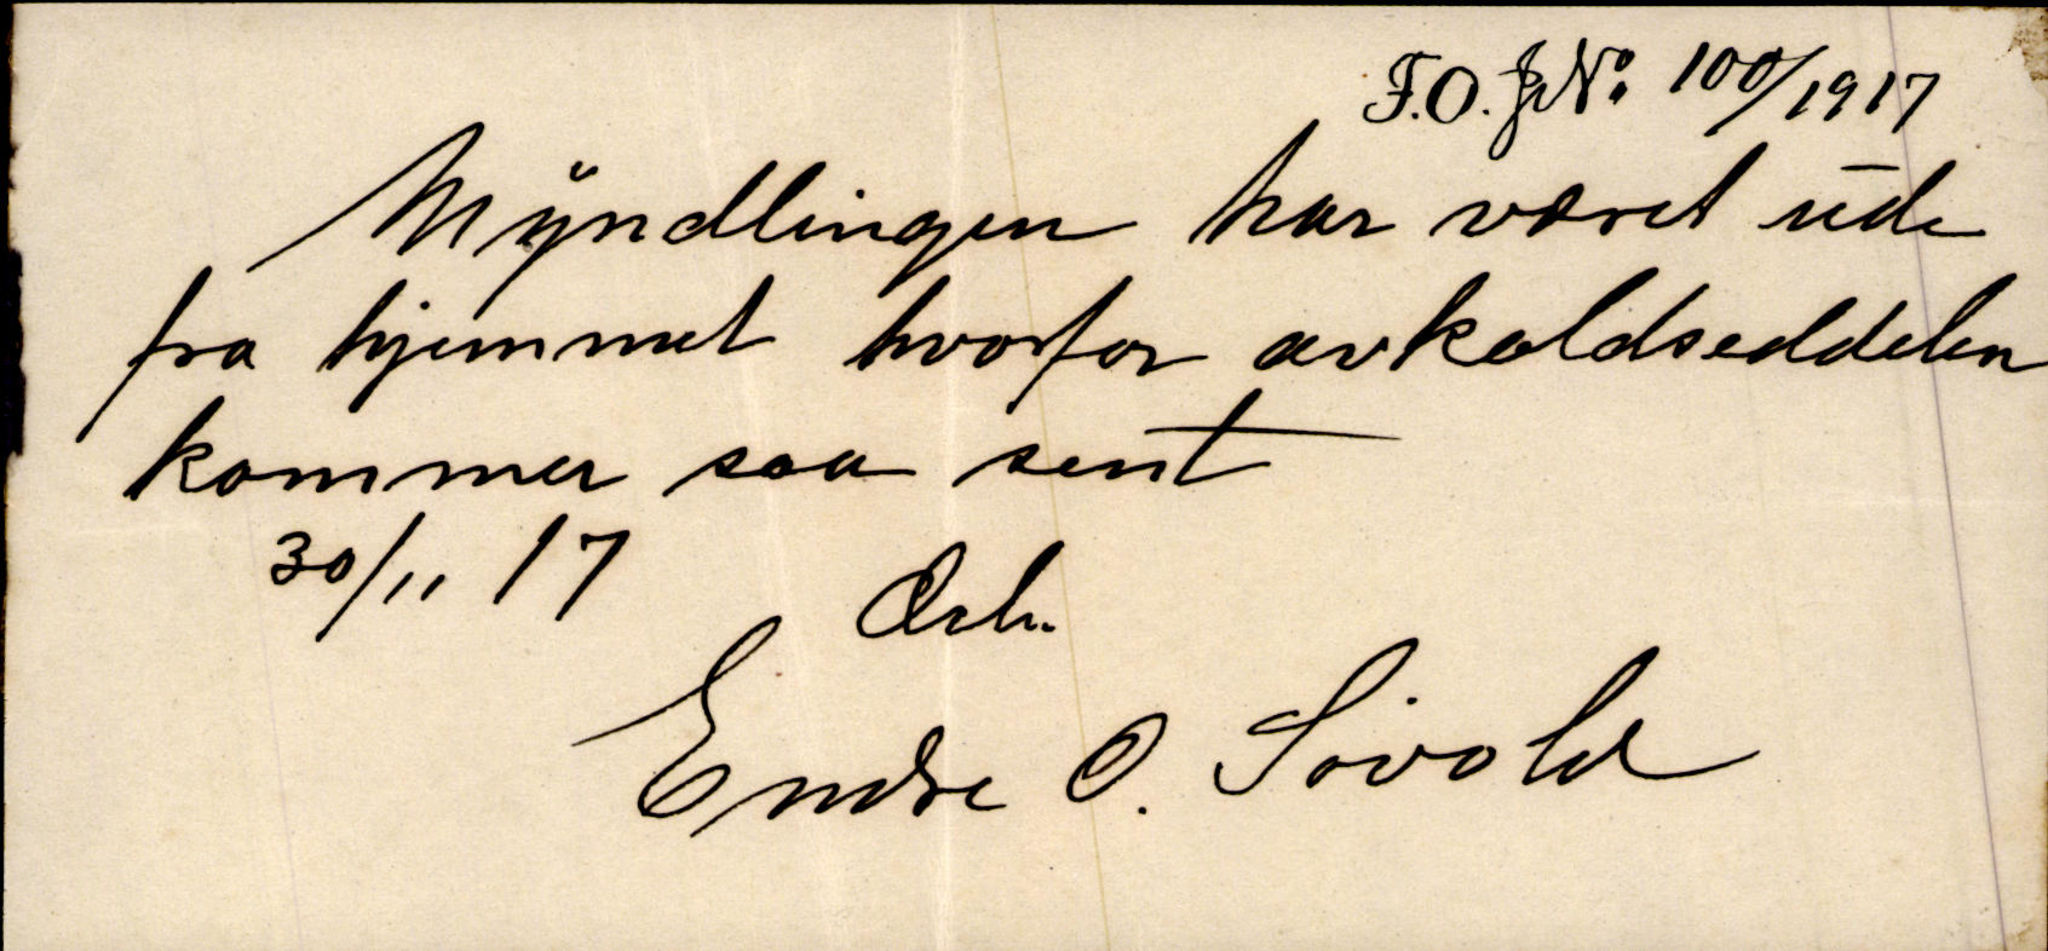 F.O. J.№ 100/1917
Myndlingen har været ude
fra hjemmet hvorfor avkaldseddelen
kommer saa sent
30/11 17 Ærb.
Endre O. Sivold